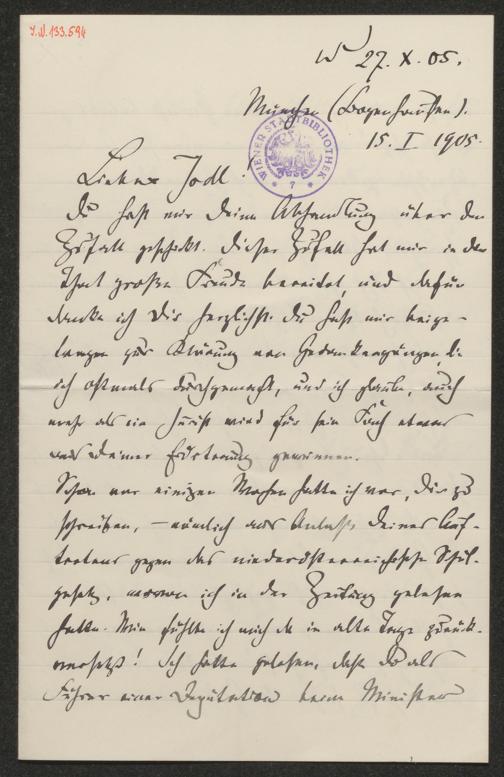 I.N. 133.594
27. X. 05.
München (Bogenhausen).
15. I 1905.
WIENER STADTBIBLIOTHEK
7
Lieber Jodl!
Du hast mir Deine Abhandlung über den
Zufall geschickt. Dieser Zufall hat mir in der
That große Freude bereitet, und dafür
danke ich Dir herzlichst. Du hast mir
zur Klärung von Gedankengängen, die
ich oftmals durchgemacht, und ich glaube, auch
mehr als ein Jurist wird für sein Fach etwas
aus Deiner Erörterung gewinnen.
Schon vor einigen Wochen hatte ich vor, Dir zu
schreiben, – nämlich aus Anlaß Deines Auf-
tretens gegen das niederösterreichische Schul-
gesetz, wovon ich in der Zeitung gelesen
hatte. Wie fühlte ich mich da in alte Tage zurück-
versetzt! Ich hatte gelesen, daß Du als
Führer einer Deputation beim Minister